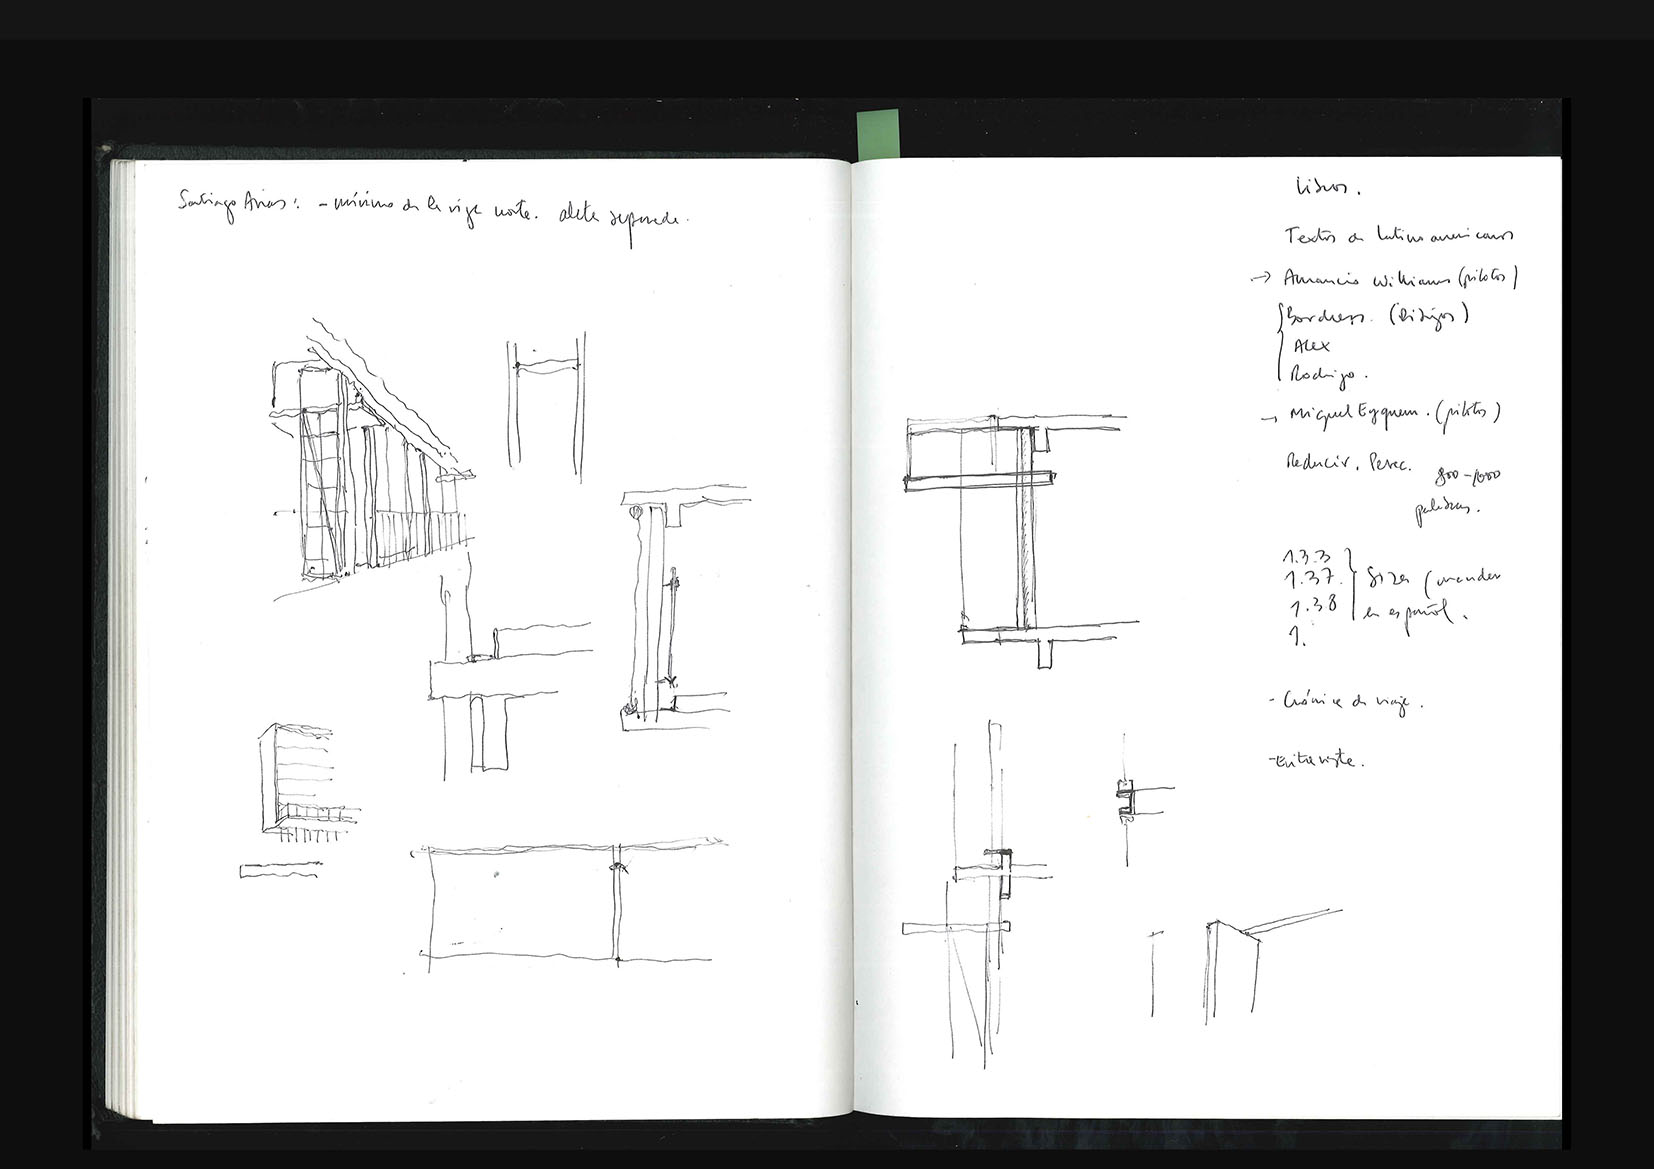 Santiago Arias: - mínimo de la viga norte. aleta separada.
Libros.
Textos de latinoamericanos
→ Amancio Williams (pilotos)
Borchers. (Dibujos)
Alex
Rodrigo.
→ Miguel Eyquem. (pilotos)
Reducir. Perec.
800-1000
palabras.
1.3.3
1.37.
1.38
1.
Siza (mandar
en español.
- Crónica de viaje.
- Entrevista.